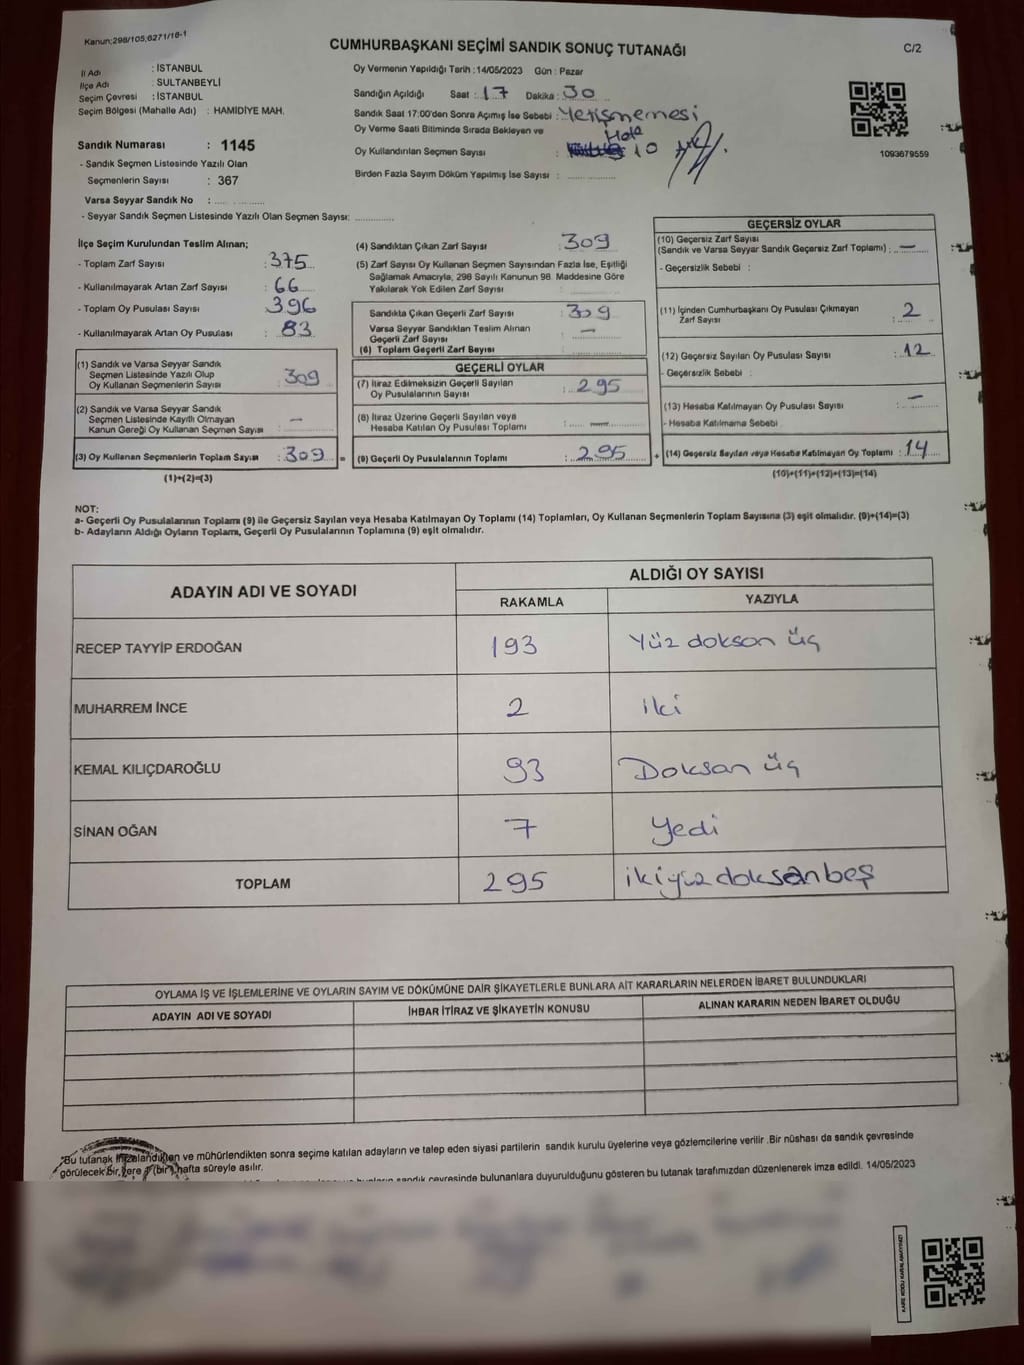 Kanun;298/105,6271/16-1
CUMHURBAŞKANI SEÇİMİ SANDIK SONUÇ TUTANAĞI
C/2
İl Adı : İSTANBUL
İlçe Adı : SULTANBEYLİ
Seçim Çevresi : İSTANBUL
Seçim Bölgesi (Mahalle Adı) : HAMİDİYE MAH.
Sandık Numarası : 1145
- Sandık Seçmen Listesinde Yazılı Olan
Seçmenlerin Sayısı : 367
Varsa Seyyar Sandık No :
- Seyyar Sandık Seçmen Listesinde Yazılı Olan Seçmen Sayısı:
Oy Vermenin Yapıldığı Tarih : 14/05/2023 Gün : Pazar
Sandığın Açıldığı Saat : 17 Dakika : 30
Sandık Saat 17:00'den Sonra Açımış İse Sebebi : Yetişmemesi
Oy Verme Saati Bitiminde Sırada Bekleyen ve
Oy Kullandırılan Seçmen Sayısı : 10
Birden Fazla Sayım Döküm Yapılmış İse Sayısı :
1093679559
İlçe Seçim Kurulundan Teslim Alınan;
- Toplam Zarf Sayısı : 375
- Kullanılmayarak Artan Zarf Sayısı : 66
- Toplam Oy Pusulası Sayısı : 396
- Kullanılmayarak Artan Oy Pusulası : 83
(1) Sandık ve Varsa Seyyar Sandık
Seçmen Listesinde Yazılı Olup
Oy Kullanan Seçmenlerin Sayısı : 309
(2) Sandık ve Varsa Seyyar Sandık
Seçmen Listesinde Kayıtlı Olmayan
Kanun Gereği Oy Kullanan Seçmen Sayısı : –
(3) Oy Kullanan Seçmenlerin Toplam Sayısı : 309 =
(1)+(2)=(3)
(4) Sandıktan Çıkan Zarf Sayısı : 309
(5) Zarf Sayısı Oy Kullanan Seçmen Sayısından Fazla İse, Eşitliği
Sağlamak Amacıyla, 298 Sayılı Kanunun 98. Maddesine Göre
Yakılarak Yok Edilen Zarf Sayısı :
Sandıkta Çıkan Geçerli Zarf Sayısı : 309
Varsa Seyyar Sandıktan Teslim Alınan
Geçerli Zarf Sayısı : –
(6) Toplam Geçerli Zarf Sayısı :
GEÇERLİ OYLAR
(7) İtiraz Edilmeksizin Geçerli Sayılan
Oy Pusulalarının Sayısı : 295
(8) İtiraz Üzerine Geçerli Sayılan veya
Hesaba Katılan Oy Pusulası Toplamı : –
(9) Geçerli Oy Pusulalarının Toplamı : 295 +
GEÇERSİZ OYLAR
(10) Geçersiz Zarf Sayısı
(Sandık ve Varsa Seyyar Sandık Geçersiz Zarf Toplamı) : –
- Geçersizlik Sebebi :
(11) İçinden Cumhurbaşkanı Oy Pusulası Çıkmayan
Zarf Sayısı : 2
(12) Geçersiz Sayılan Oy Pusulası Sayısı : 12
- Geçersizlik Sebebi :
(13) Hesaba Katılmayan Oy Pusulası Sayısı : –
- Hesaba Katılmama Sebebi :
(14) Geçersiz Sayılan veya Hesaba Katılmayan Oy Toplamı : 14
(10)+(11)+(12)+(13)=(14)
NOT:
a- Geçerli Oy Pusulalarının Toplamı (9) ile Geçersiz Sayılan veya Hesaba Katılmayan Oy Toplamı (14) Toplamları, Oy Kullanan Seçmenlerin Toplam Sayısına (3) eşit olmalıdır. (9)+(14)=(3)
b- Adayların Aldığı Oyların Toplamı, Geçerli Oy Pusulalarının Toplamına (9) eşit olmalıdır.
ADAYIN ADI VE SOYADI
ALDIĞI OY SAYISI
RAKAMLA YAZIYLA
RECEP TAYYİP ERDOĞAN 193 Yüz dokson üç
MUHARREM İNCE 2 iki
KEMAL KILIÇDAROĞLU 93 Doksan üç
SİNAN OĞAN 7 Yedi
TOPLAM 295 ikiyüzdoksanbeş
OYLAMA İŞ VE İŞLEMLERİNE VE OYLARIN SAYIM VE DÖKÜMÜNE DAİR ŞİKAYETLERLE BUNLARA AİT KARARLARIN NELERDEN İBARET BULUNDUKLARI
ADAYIN ADI VE SOYADI İHBAR İTİRAZ VE ŞİKAYETİN KONUSU ALINAN KARARIN NEDEN İBARET OLDUĞU
"Bu tutanak imzalandıkten ve mühürlendikten sonra seçime katılan adayların ve talep eden siyasi partilerin sandık kurulu üyelerine veya gözlemcilerine verilir .Bir nüshası da sandık çevresinde
görülecek bir yere 7 (bir) hafta süreyle asılır.
sandık çevresinde bulunanlara duyurulduğunu gösteren bu tutanak tarafımızdan düzenlenerek imza edildi. 14/05/2023
KARE KODU KARALAMAYINIZ!